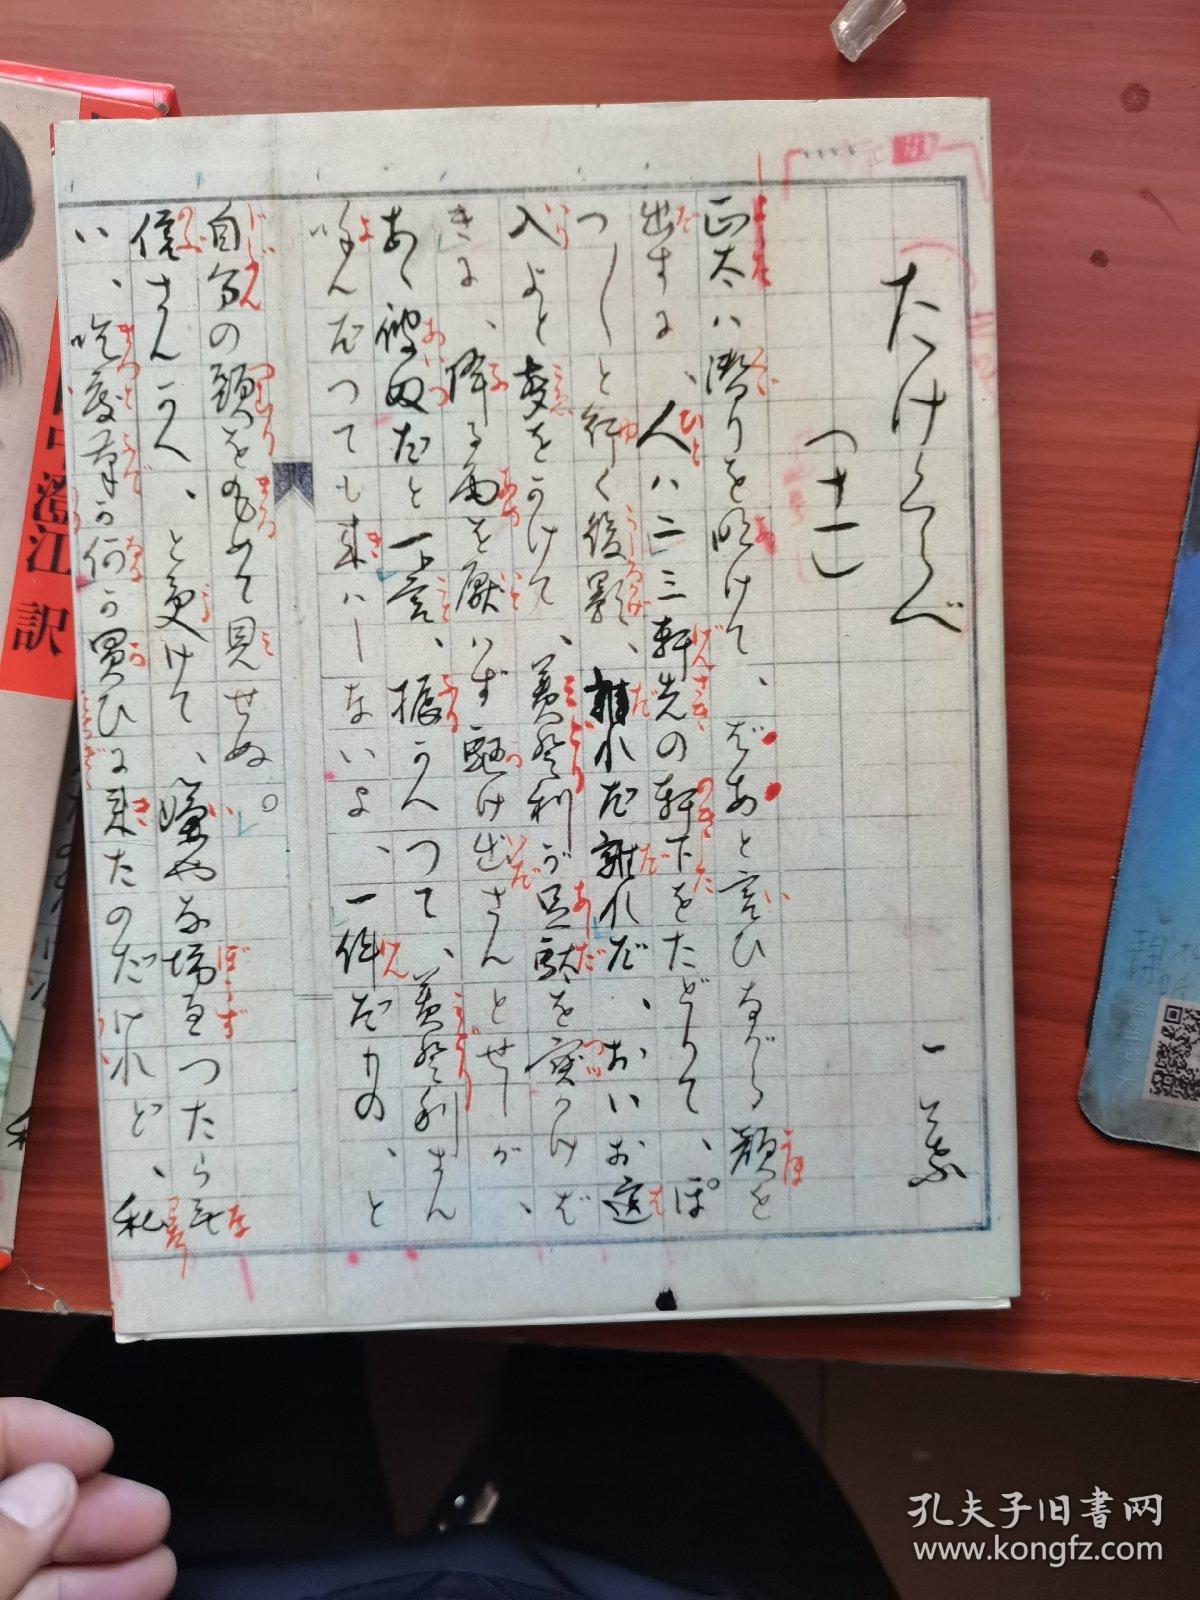 たけくらべ
一葉
（十一）
正太ハ潜りを明けて、ばあと言ひながら顔を
出すに、人ハ二三軒先の軒下をたどりて、ぽ
つ〱と行く後影、誰れだ誰れだ、おいお這
入よと声をかけて、美登利が足駄を突かけば
きに、降る雨を厭ハず駆け出さんとせしが、
あゝ彼奴だと一ト言、振かへつて、美登利さん
呼んだつても来ハしないよ、一件だもの、と
自分の頭を丸めて見せぬ。
信さんかへ、と受けて、嫌やな坊主つたら無
い、屹度筆か何か買ひに来たのだけれど、私
澄江 訳
孔夫子旧书网
www.kongfz.com